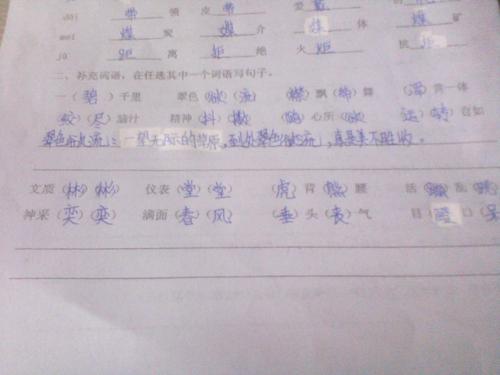 dài 带 领 皮 带 爱 戴
méi 煤 炭 媒 介 媒 体 煤 矿
jù 距 离 拒 绝 火 炬 抗 拒
二、补充词语，在任选其中一个词语写句子。
一（碧）千里 翠色（欲）（流） （襟）飘（带）舞 （浑）黄一体
（绞）（尽）脑汁 精神（抖）（擞） 心所（欲） 运（转）自如
翠色欲流：一望无际的草原，到处翠色欲流，真是美不胜收。
文质（彬）（彬） 仪表（堂）（堂） （虎）背（熊）腰 活（蹦）乱（跳）
神采（奕）（奕） 满面（春）（风） （垂）头（丧）气 目（瞪）口（呆